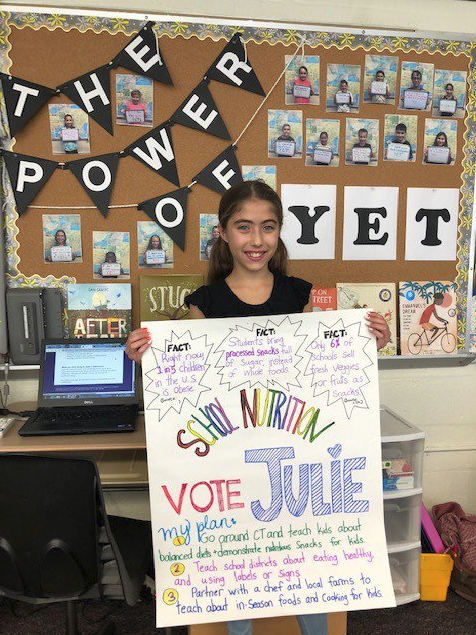 THE POWER
POWER
OF
YET
AFTER
STUC
STREET
FACT:
Right now
1 in 5 children
in the U.S.
is obese
FACT:
Students bring
processed snacks full
of sugar, instead
of whole foods.
FACT:
Only 6% of
schools sell
fresh veggies
or fruits as
snacks!
SCHOOL NUTRITION
VOTE JULIE
my plan:
1 Go around CT and teach kids about
balanced diets + demonstrate nutritious snacks for kids.
2 Teach school districts about eating healthy,
and using labels or signs.
3 Partner with a chef and local farms to
teach about in-season foods and cooking for kids.